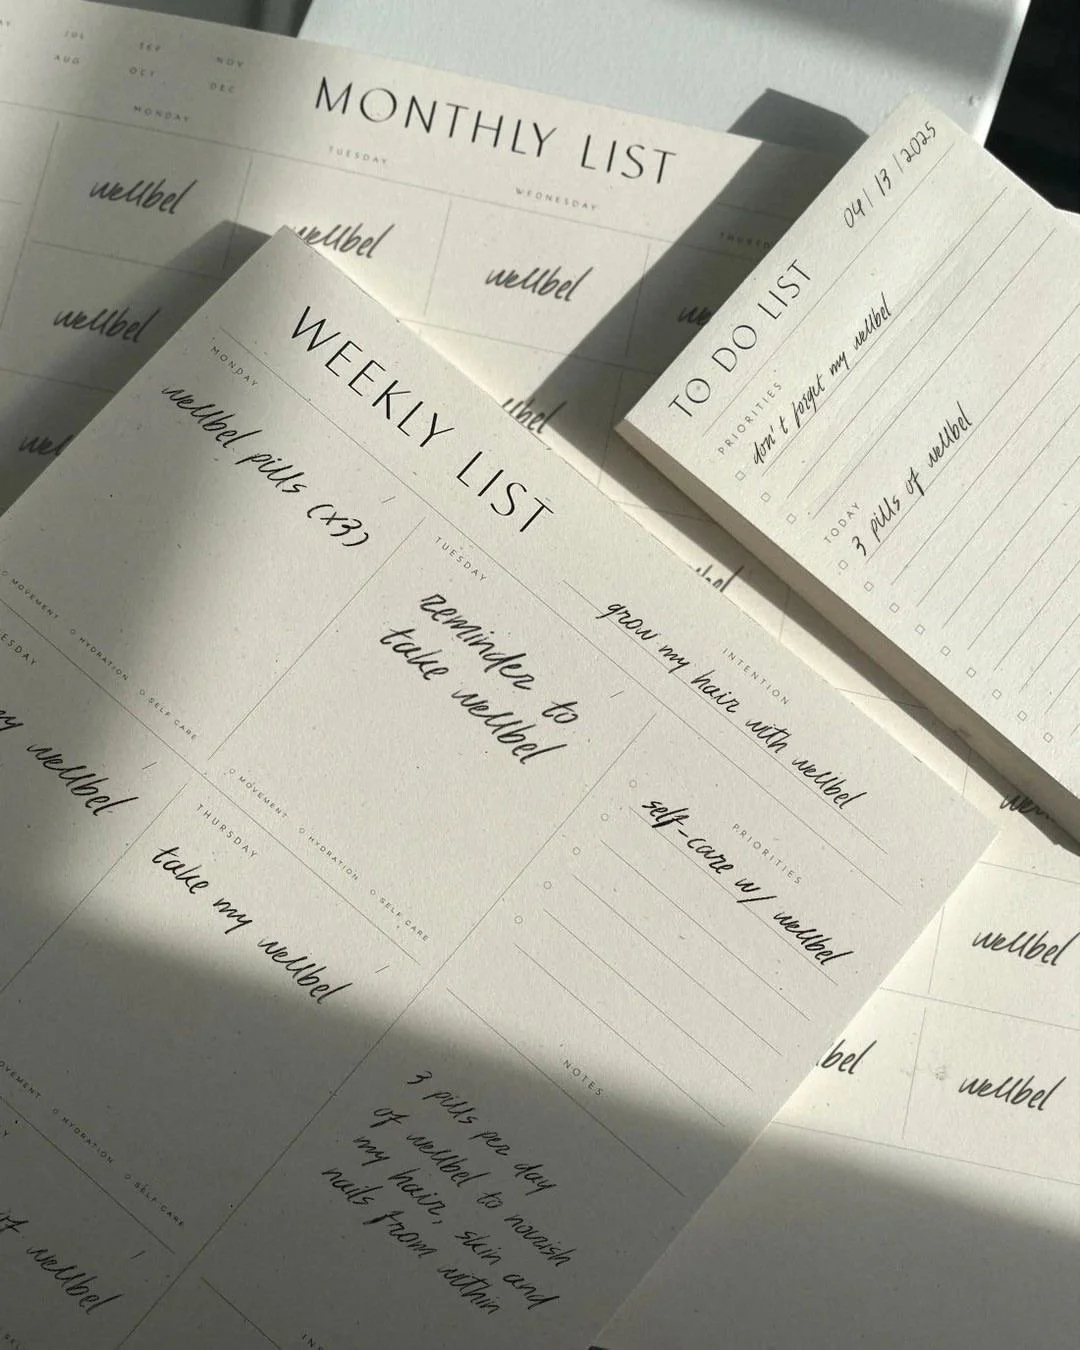 JUL SEP NOV
AUG OCT DEC
MONTHLY LIST
MONDAY
TUESDAY
WEDNESDAY
wellbel
wellbel
wellbel
wellbel
WEEKLY LIST
MONDAY
wellbel pills (x3)
MOVEMENT HYDRATION SELF CARE
TUESDAY
reminder to
take wellbel
MOVEMENT HYDRATION SELF CARE
wellbel
THURSDAY
take my wellbel
MOVEMENT HYDRATION SELF CARE
of wellbel
INTENTION
grow my hair with wellbel
PRIORITIES
self-care w/ wellbel
NOTES
3 pills per day
of wellbel to nourish
my hair, skin and
nails from within
04/13/2025
TO DO LIST
PRIORITIES
don't forget my wellbel
TODAY
3 pills of wellbel
wellbel
wellbel